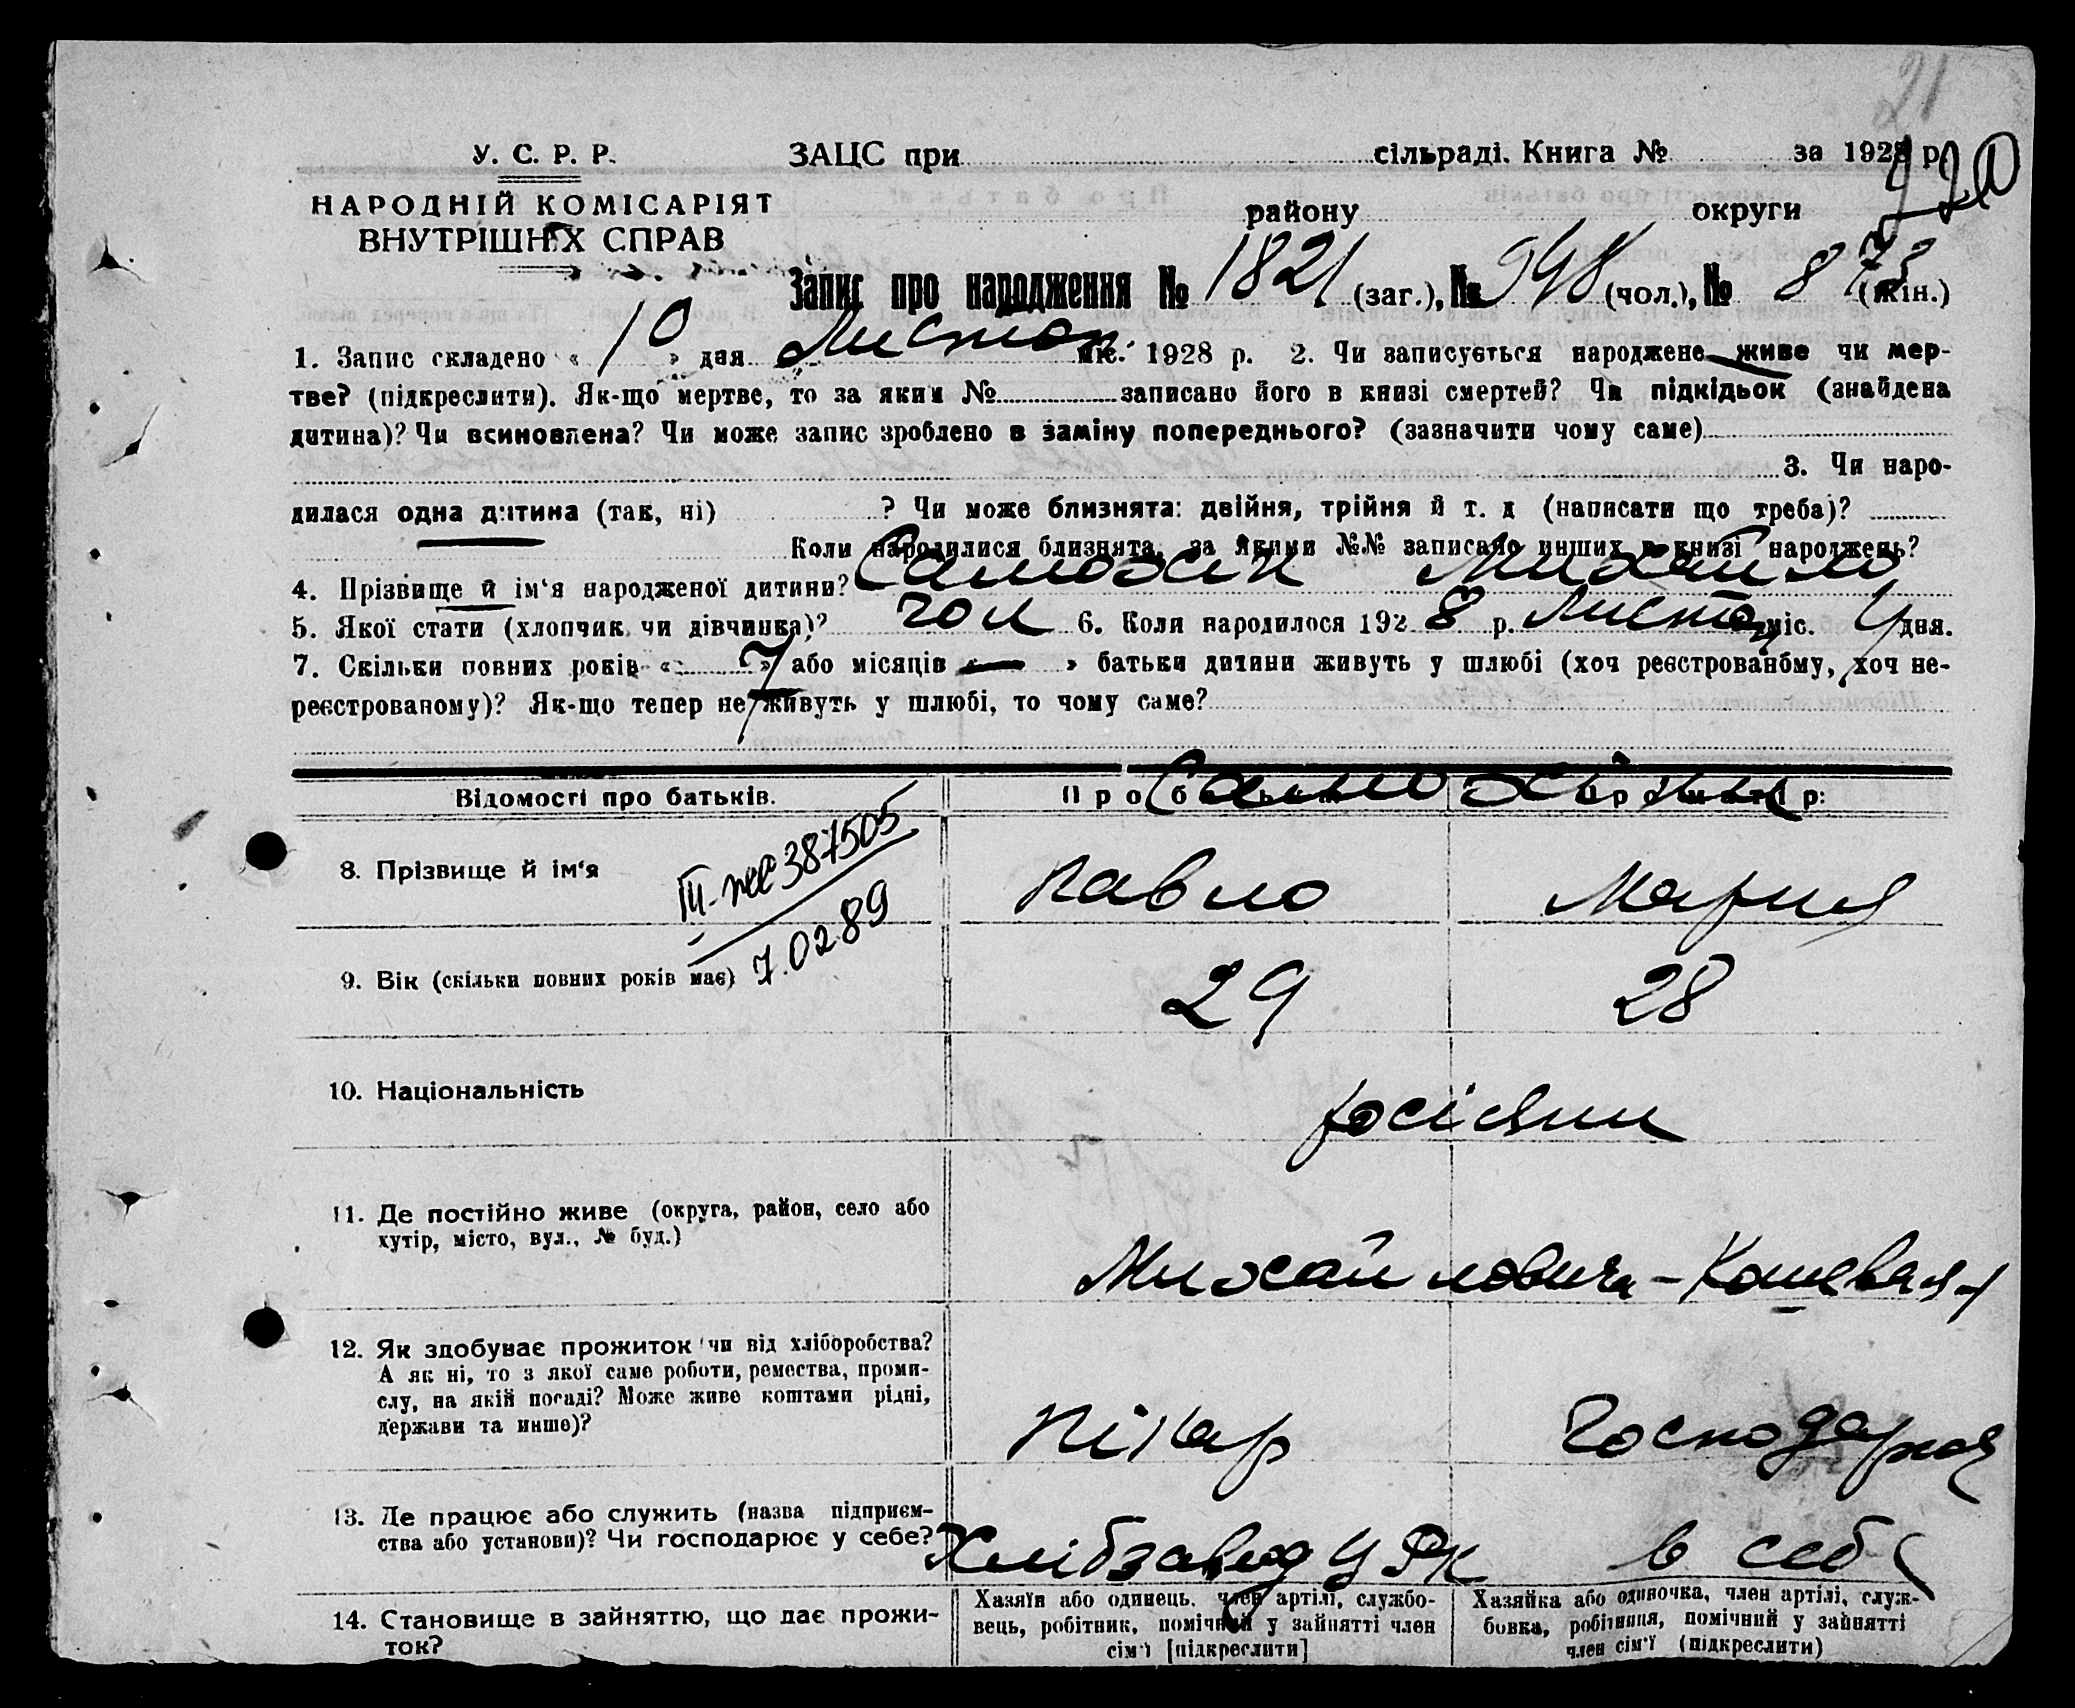 21
20
У. С. Р. Р.
НАРОДНІЙ КОМІСАРІЯТ
ВНУТРІШНІХ СПРАВ
ЗАЦС при сільраді. Книга № за 1928 р.
району округи
Запис про народження № 1821 (заг.), № 948 (чол.), № 873 (жін.)
1. Запис складено « 10 » дня Листоп міс. 1928 р. 2. Чи записується народжене живе чи мер-
тве? (підкреслити). Як-що мертве, то за яким № записано його в книзі смертей? Чи підкідьок (знайдена
дитина)? Чи всиновлена? Чи може запис зроблено в заміну попереднього? (зазначити чому саме)
3. Чи наро-
дилася одна дитина (так, ні) ? Чи може близнята: двійня, трійня й т. д (написати що треба)?
Коли народилися близнята, за якими №№ записано инших в книзі народжень?
4. Прізвище й ім‘я народженої дитини? Самохін Михайло
5. Якої стати (хлопчик чи дівчинка)? чол 6. Коли народилося 1928 р. Листоп міс. 4 дня.
7. Скільки повних років « 7 » або місяців « — » батьки дитини живуть у шлюбі (хоч реєстрованому, хоч не-
реєстрованому)? Як-що тепер не живуть у шлюбі, то чому саме?
Відомості про батьків. Про батька: Про матір:
Самохіни
8. Прізвище й ім‘я Павло Мария
III- 387505
7.02.89
9. Вік (скільки повних років має) 29 28
10. Національність росіяни
11. Де постійно живе (округа, район, село або
хутір, місто, вул., № буд.)
Михайловича-Кошевая
12. Як здобуває прожиток чи від хліборобства?
А як ні, то з якої саме роботи, ремества, проми-
слу, на якій посаді? Може живе коштами рідні,
держави та инше)?
пікар Господарює
13. Де працює або служить (назва підприєм-
ства або установи)? Чи господарює у себе?
Хлібзавод ЦРК в себе
14. Становище в зайняттю, що дає прожи-
ток?
Хазяїн або одинець, член артілі, службо-
вець, робітник, помічний у зайнятті член
сім‘ї [підкреслити]
Хазяйка або одиночка, член артілі, служ-
бовка, робітниця, помічний у зайнятті
член сім‘ї (підкреслити)